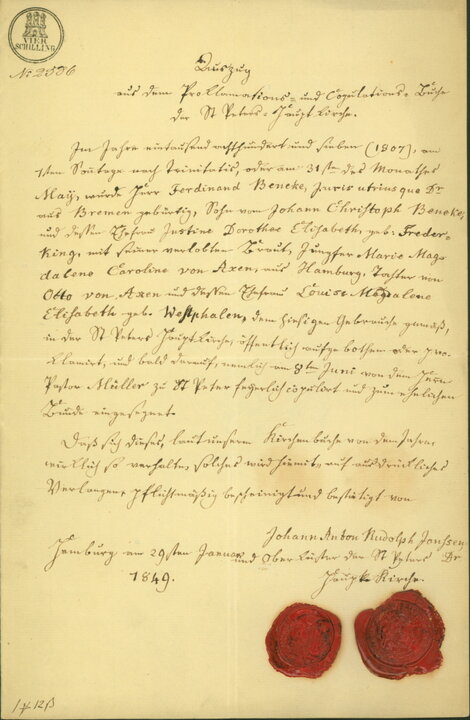 VIER
SCHILLING
No 2536
Auszug
aus dem Proklamations- und Copulations-Buche
der St Peters-Haupt Kirche.
Im Jahre eintausend achthundert und sieben (1807), am
1sten Sontage nach Trinitatis oder am 31sten des Monathes
May, wurde Herr Ferdinand Beneke, Juris utriusque Dr
aus Bremen gebürtig, Sohn von Johann Christoph Beneke,
und dessen Ehefrau Justine Dorothee Elisabeth, geb: Frederking,
mit seiner verlobten Braut, Jungfer Marie Magdalena
Caroline von Axen, aus Hamburg, Tochter von
Otto von Axen und dessen Ehefrau Louise Magdalene
Elisabeth geb. Westphalen, dem hiesigen Gebrauche gemäß,
in der St Peters Haupt Kirche, öffentlich aufgebothen oder proklamirt,
und bald darauf, nemlich am 8ten Juni von dem Herrn
Pastor Müller zu St Peter feyerlich copulirt und zum ehelichen
Bunde eingesegnet.
Daß sich dieses, laut unserm Kirchenbuche von dem Jahre,
wirklich so verhalte, solches wird hiemit, auf ausdrückliches
Verlangen, pflichtmäßig bescheinigt und bestätigt von
Johann Anton Rudolph Janssen Dr
Hamburg am 29sten Januar und Ober Küster der St Peters
1849. Haupt Kirche.
12ß